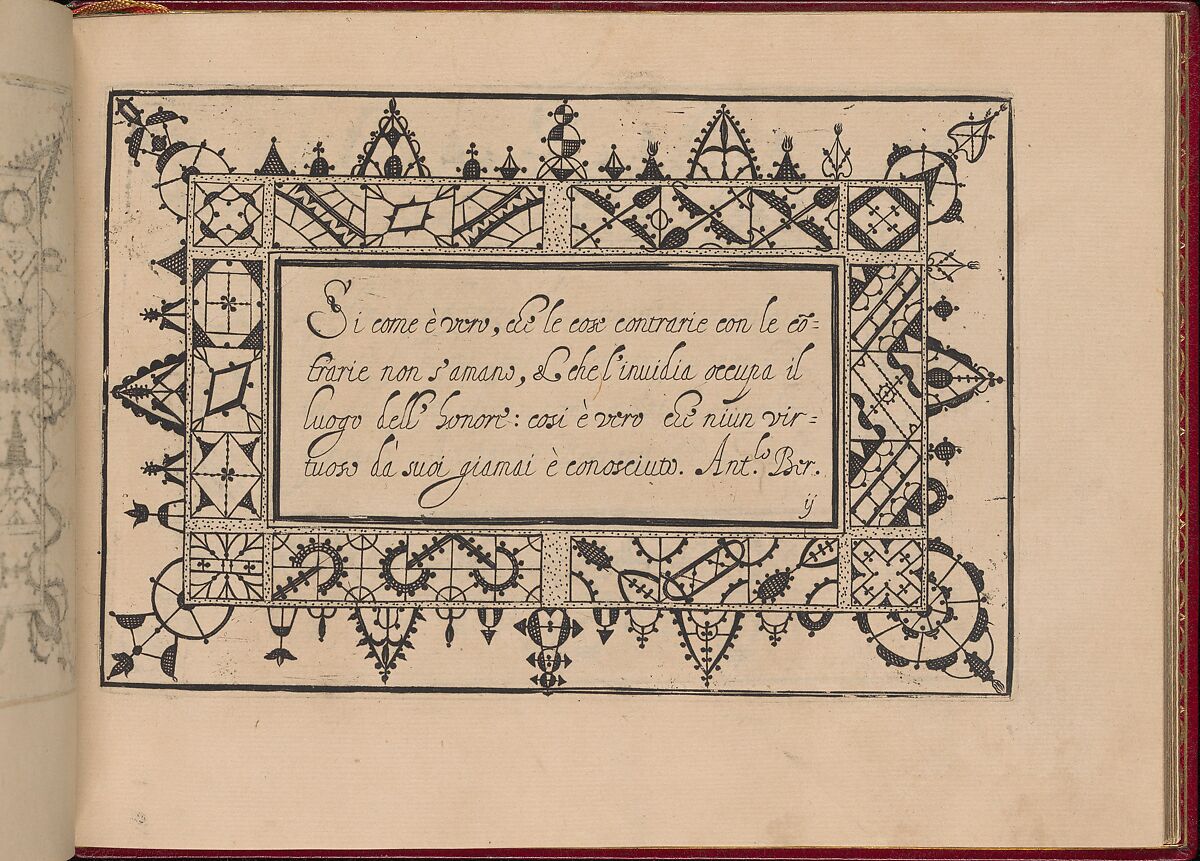 Si come è vero, che le cose contrarie con le cõ=
trarie non s'amano, & che l'inuidia occupa il
luogo dell' honore: cosi è vero che niun vir=
tuoso da suoi giamai è conosciuto. Ant.lo Ber.
ij